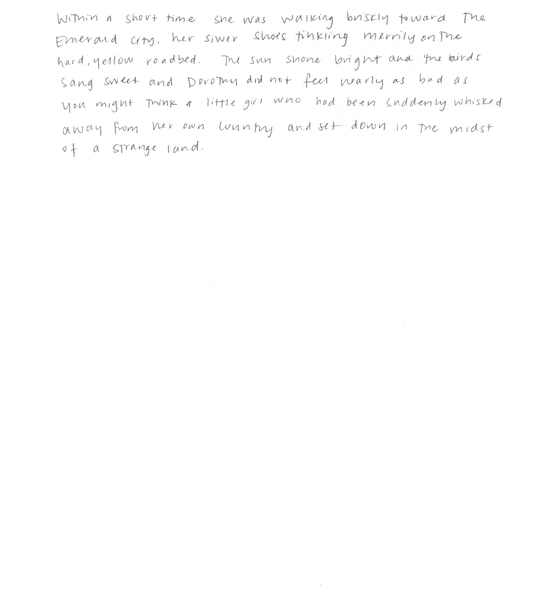 Within a short time she was walking briskly toward The
Emerald City, her silver shoes tinkling merrily on The
hard, yellow roadbed. The sun shone bright and the birds
sang sweet and Dorothy did not feel nearly as bad as
you might Think a little girl who had been suddenly whisked
away from her own country and set down in The midst
of a strange land.